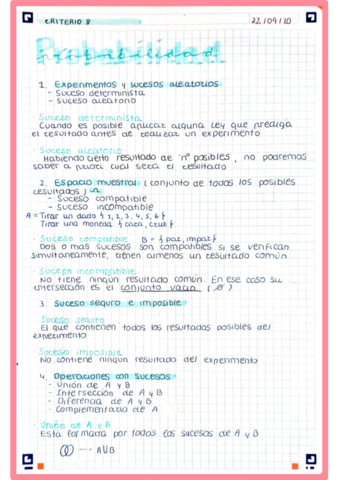 CRITERIO 8 22/04/20
Probabilidad
1. Experimentos y sucesos aleatorios
- Suceso determinista
- Suceso aleatorio
· Suceso determinista
Cuando es posible aplicar alguna ley que prediga
el resultado antes de realizar un experimento
· Suceso aleatorio
Habiendo cierto resultado de "nº posibles", no podremos
saber a priori cual será el resultado
2. Espacio muestral (conjunto de todos los posibles
resultados)
- Suceso compatible
- Suceso incompatible
A = Tirar un dado { 1, 2, 3, 4, 5, 6 }
Tirar una moneda { cara, cruz }
· Suceso compatible B = { par, impar }
Dos o más sucesos son compatibles si se verifican
simultaneamente, tienen almenos un resultado común
· Suceso incompatible
No tiene ningún resultado común. En ese caso su
intersección es el conjunto vacío (∅)
3. Suceso seguro e imposible
· Suceso seguro
El que contienen todos los resultados posibles del
experimento
· Suceso imposible
No contiene ningún resultado del experimento
4. Operaciones con sucesos
- Unión de A y B
- Intersección de A y B
- Diferencia de A y B
- Complementario de A
· Unión de A y B
Está formada por todos los sucesos de A y B
A∪B